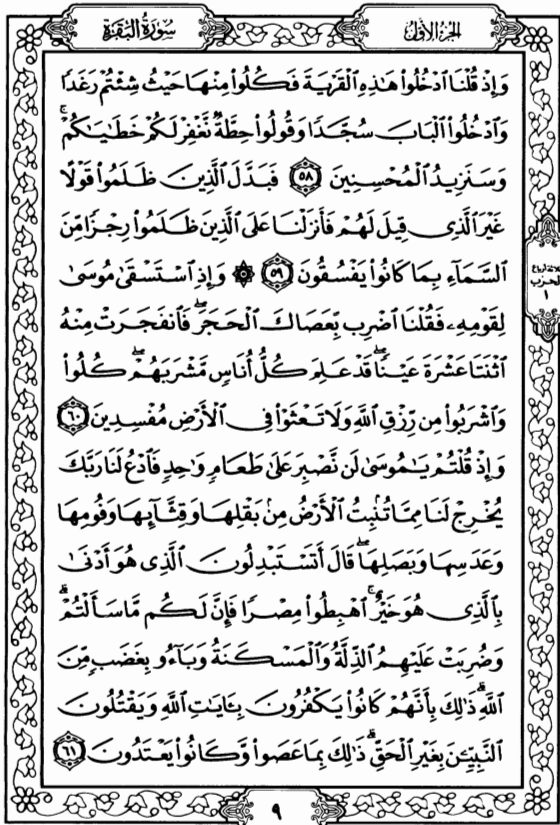 سُورَةُ البَقَرَةِ
الجُزءُ الأوَّلُ
وَإِذْ قُلْنَا ٱدْخُلُوا۟ هَٰذِهِ ٱلْقَرْيَةَ فَكُلُوا۟ مِنْهَا حَيْثُ شِئْتُمْ رَغَدًا
وَٱدْخُلُوا۟ ٱلْبَابَ سُجَّدًا وَقُولُوا۟ حِطَّةٌ نَّغْفِرْ لَكُمْ خَطَٰيَٰكُمْ ۚ
وَسَنَزِيدُ ٱلْمُحْسِنِينَ ٥٨ فَبَدَّلَ ٱلَّذِينَ ظَلَمُوا۟ قَوْلًا
غَيْرَ ٱلَّذِى قِيلَ لَهُمْ فَأَنزَلْنَا عَلَى ٱلَّذِينَ ظَلَمُوا۟ رِجْزًا مِّنَ
ٱلسَّمَآءِ بِمَا كَانُوا۟ يَفْسُقُونَ ٥٩ ۞ وَإِذِ ٱسْتَسْقَىٰ مُوسَىٰ
لِقَوْمِهِۦ فَقُلْنَا ٱضْرِب بِّعَصَاكَ ٱلْحَجَرَ ۖ فَٱنفَجَرَتْ مِنْهُ
ٱثْنَتَا عَشْرَةَ عَيْنًا ۖ قَدْ عَلِمَ كُلُّ أُنَاسٍ مَّشْرَبَهُمْ ۖ كُلُوا۟
وَٱشْرَبُوا۟ مِن رِّزْقِ ٱللَّهِ وَلَا تَعْثَوْا۟ فِى ٱلْأَرْضِ مُفْسِدِينَ ٦٠
وَإِذْ قُلْتُمْ يَٰمُوسَىٰ لَن نَّصْبِرَ عَلَىٰ طَعَامٍ وَٰحِدٍ فَٱدْعُ لَنَا رَبَّكَ
يُخْرِجْ لَنَا مِمَّا تُنۢبِتُ ٱلْأَرْضُ مِنۢ بَقْلِهَا وَقِثَّآئِهَا وَفُومِهَا
وَعَدَسِهَا وَبَصَلِهَا ۖ قَالَ أَتَسْتَبْدِلُونَ ٱلَّذِى هُوَ أَدْنَىٰ
بِٱلَّذِى هُوَ خَيْرٌ ۚ ٱهْبِطُوا۟ مِصْرًا فَإِنَّ لَكُم مَّا سَأَلْتُمْ ۗ
وَضُرِبَتْ عَلَيْهِمُ ٱلذِّلَّةُ وَٱلْمَسْكَنَةُ وَبَآءُو بِغَضَبٍ مِّنَ
ٱللَّهِ ۗ ذَٰلِكَ بِأَنَّهُمْ كَانُوا۟ يَكْفُرُونَ بِـَٔايَٰتِ ٱللَّهِ وَيَقْتُلُونَ
ٱلنَّبِيِّـۧنَ بِغَيْرِ ٱلْحَقِّ ۗ ذَٰلِكَ بِمَا عَصَوا۟ وَّكَانُوا۟ يَعْتَدُونَ ٦١
ثلاثة أرباع
الحزب
١
٩